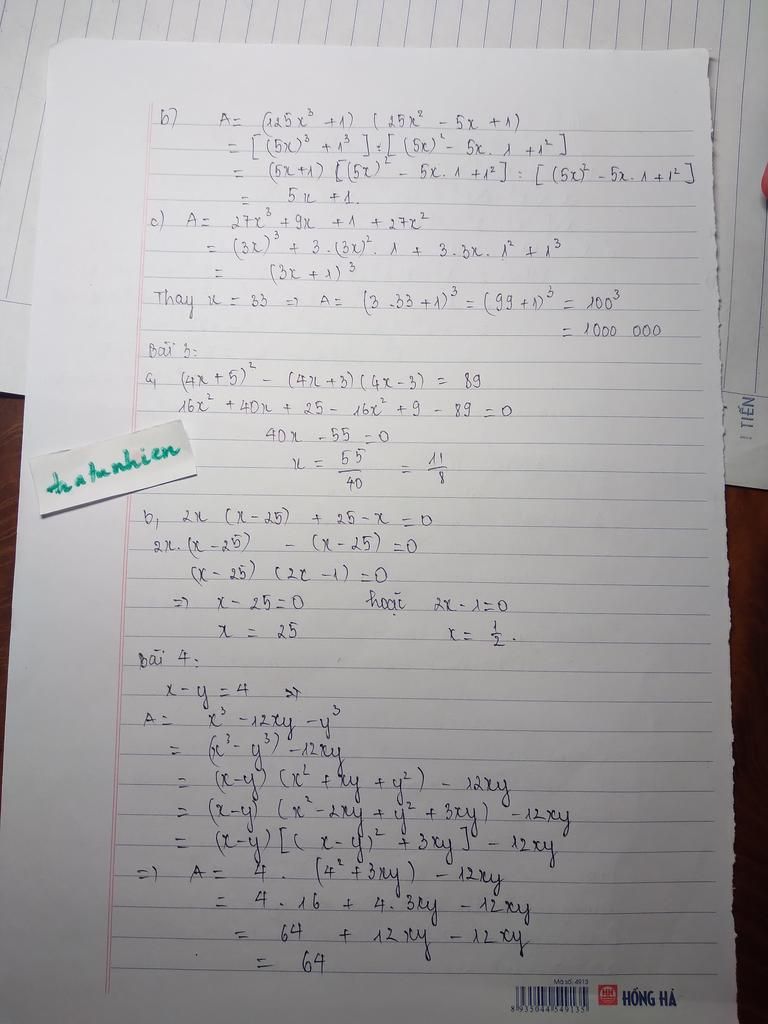 b) A = (125x³ + 1) (25x² - 5x + 1)
= [(5x)³ + 1³] : [(5x)² - 5x . 1 + 1²]
= (5x+1) [(5x)² - 5x . 1 + 1²] : [(5x)² - 5x . 1 + 1²]
= 5x + 1.
c) A = 27x³ + 9x + 1 + 27x²
= (3x)³ + 3 . (3x)² . 1 + 3 . 3x . 1² + 1³
= (3x + 1)³
Thay x = 33 => A = (3 . 33 + 1)³ = (99 + 1)³ = 100³
= 1000 000
Bài 3:
a, (4x + 5)² - (4x + 3)(4x - 3) = 89
16x² + 40x + 25 - 16x² + 9 - 89 = 0
40x - 55 = 0
x = 55/40 = 11/8
b, 2x (x - 25) + 25 - x = 0
2x . (x - 25) - (x - 25) = 0
(x - 25) (2x - 1) = 0
=> x - 25 = 0 hoặc 2x - 1 = 0
x = 25 x = 1/2 .
Bài 4:
x - y = 4 =>
A = x³ - 12xy - y³
= (x³ - y³) - 12xy
= (x-y) (x² + xy + y²) - 12xy
= (x-y) (x² - 2xy + y² + 3xy) - 12xy
= (x-y) [(x - y)² + 3xy] - 12xy
=> A = 4 . (4² + 3xy) - 12xy
= 4 . 16 + 4 . 3xy - 12xy
= 64 + 12xy - 12xy
= 64
tratunhien
TIẾN
Mã số: 4913
8 935044 549135
HH
HỒNG HÀ